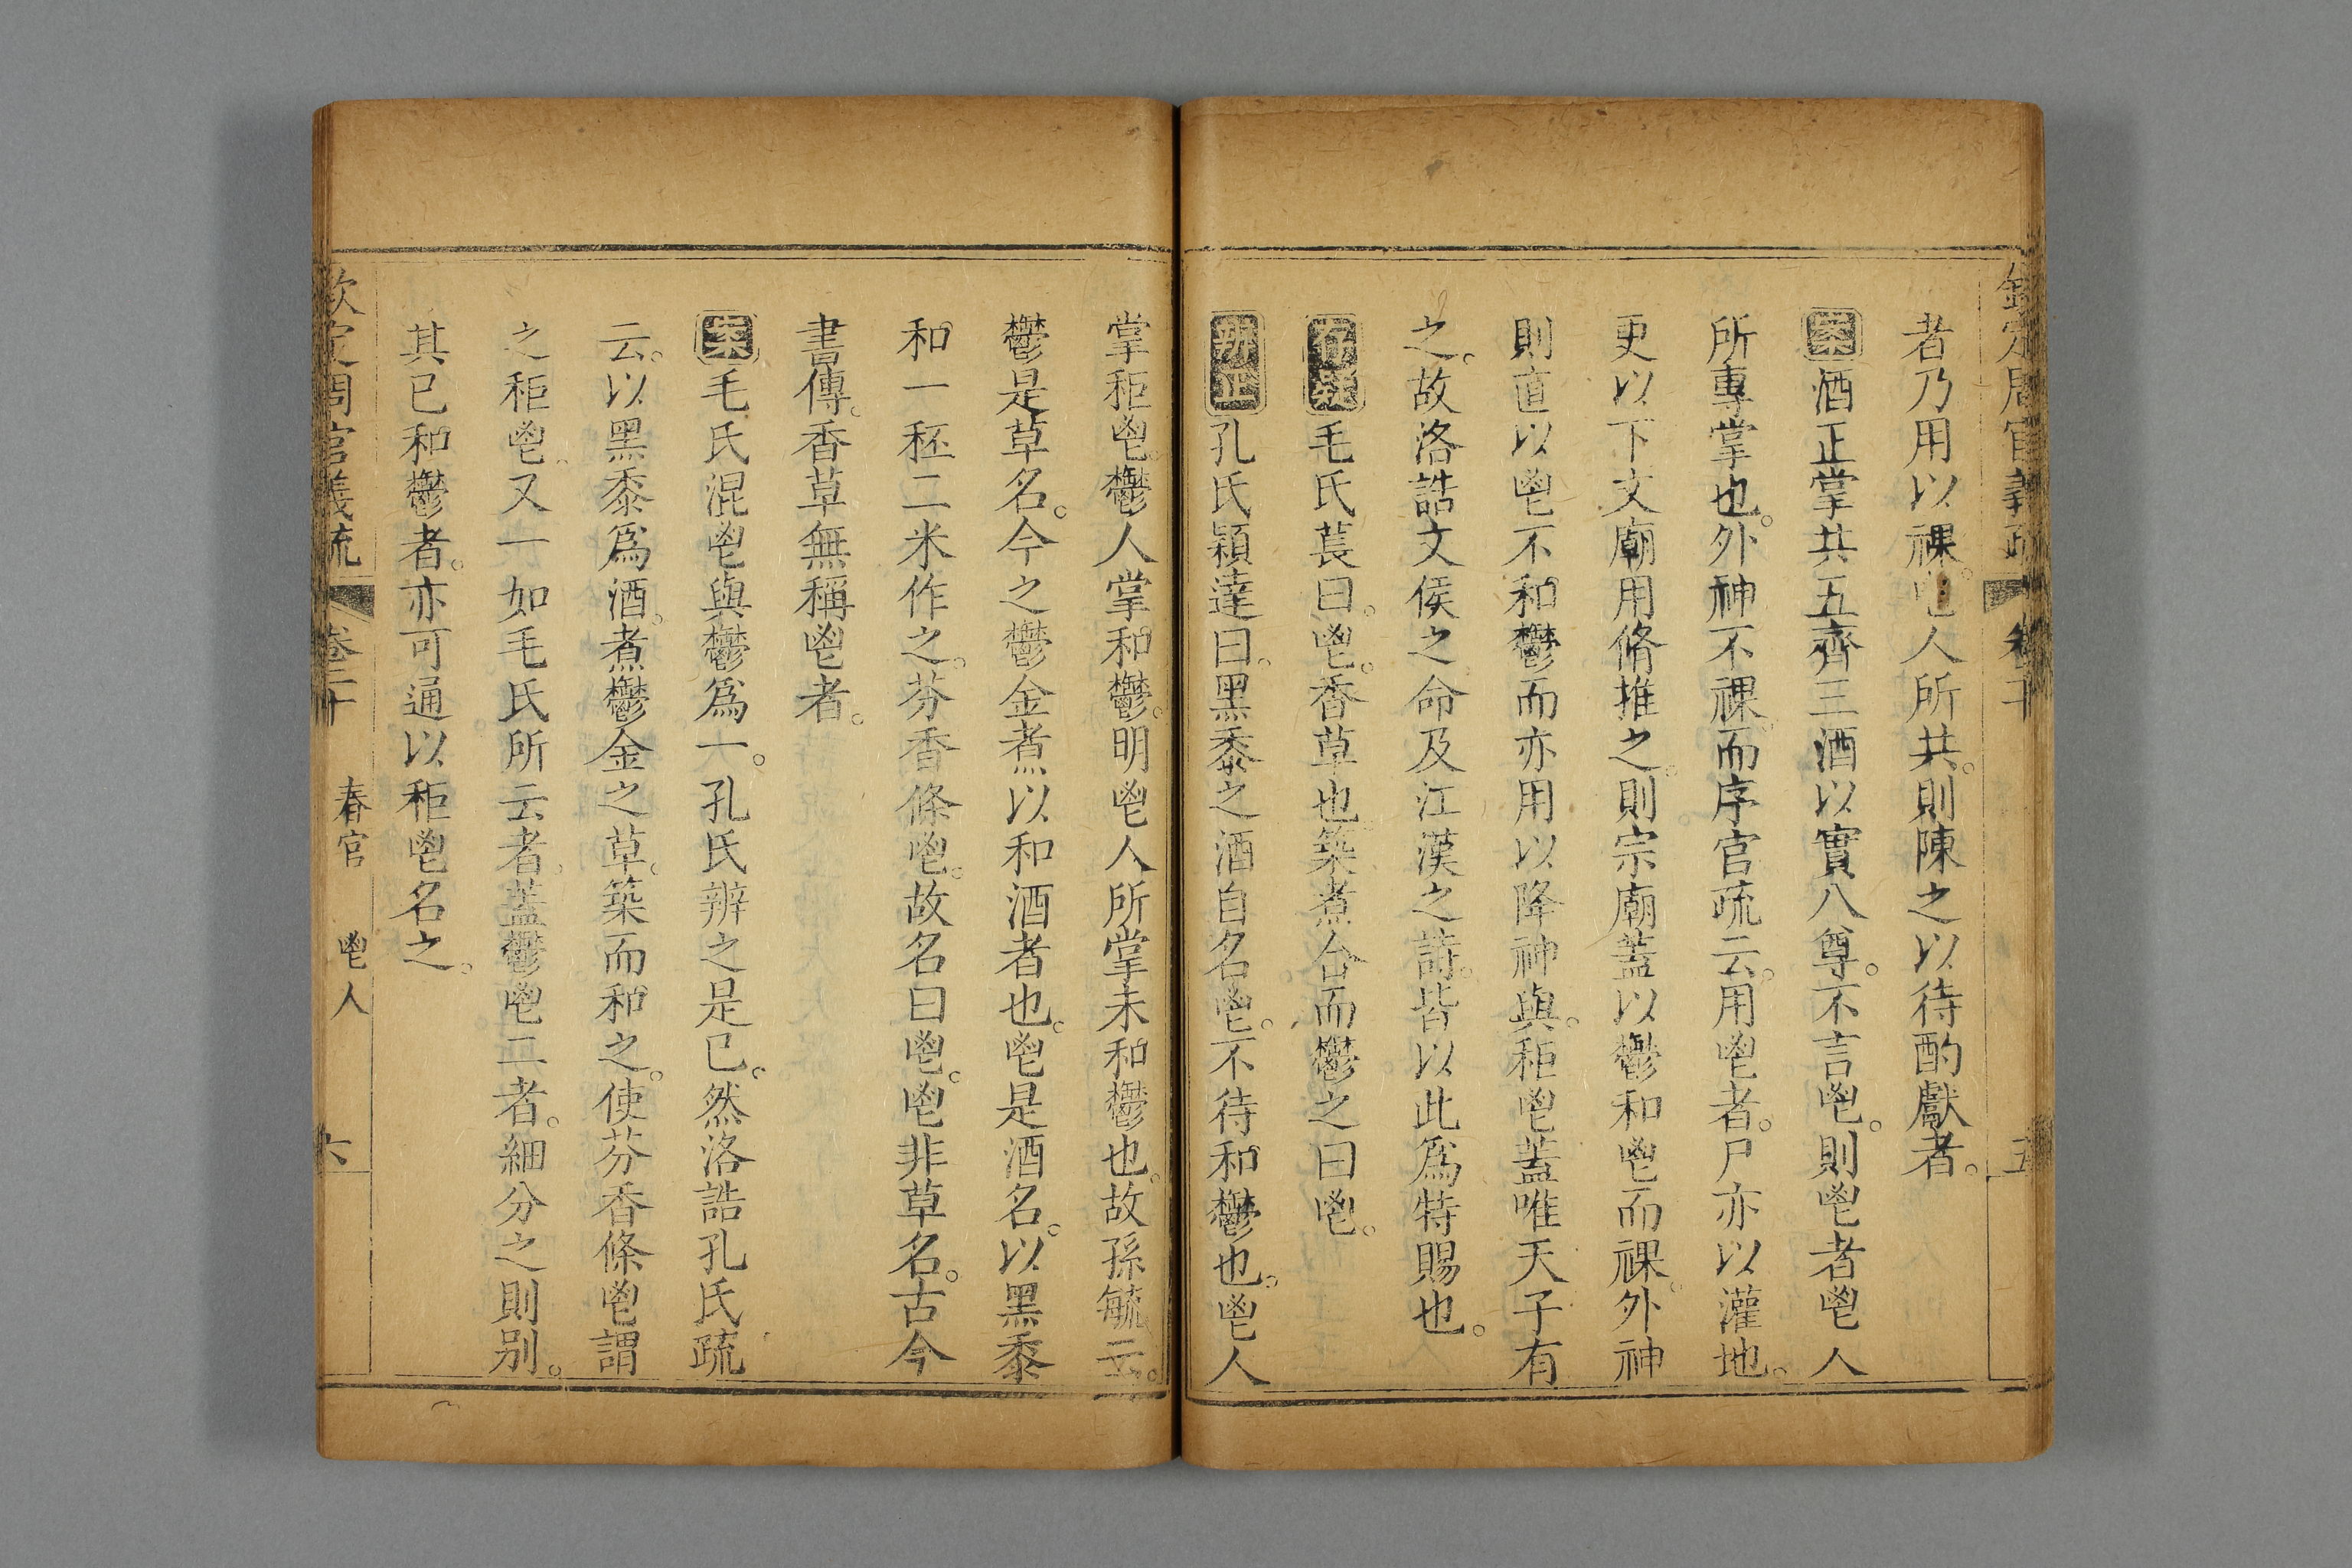 欽定周官義疏 卷二十 五
者乃用以祼。鬯人所共。則陳之以待酌獻者。
案酒正掌共五齊三酒以實八尊。不言鬯。則鬯者鬯人
所專掌也。外神不祼。而序官疏云。用鬯者。尸亦以灌地。
更以下文廟用脩推之。則宗廟蓋以鬱和鬯而祼。外神
則直以鬯不和鬱而亦用以降神與。秬鬯蓋唯天子有
之。故洛誥文侯之命及江漢之詩。皆以此爲特賜也。
存疑毛氏萇曰。鬯。香草也築煮合而鬱之曰鬯。
辨正孔氏穎達曰。黑黍之酒自名鬯。不待和鬱也。鬯人
掌秬鬯。鬱人掌和鬱。明鬯人所掌未和鬱也。故孫毓云。
鬱是草名。今之鬱金煮以和酒者也。鬯是酒名。以黑黍
和一秠二米作之。芬香條鬯。故名曰鬯。鬯非草名。古今
書傳。香草無稱鬯者。
案毛氏混鬯與鬱爲一。孔氏辨之是已。然洛誥孔氏疏
云。以黑黍爲酒。煮鬱金之草。築而和之。使芬香條鬯謂
之秬鬯。又一如毛氏所云者。蓋鬱鬯二者。細分之則別。
其已和鬱者。亦可通以秬鬯名之。
欽定周官義疏 卷二十 春官 鬯人 六